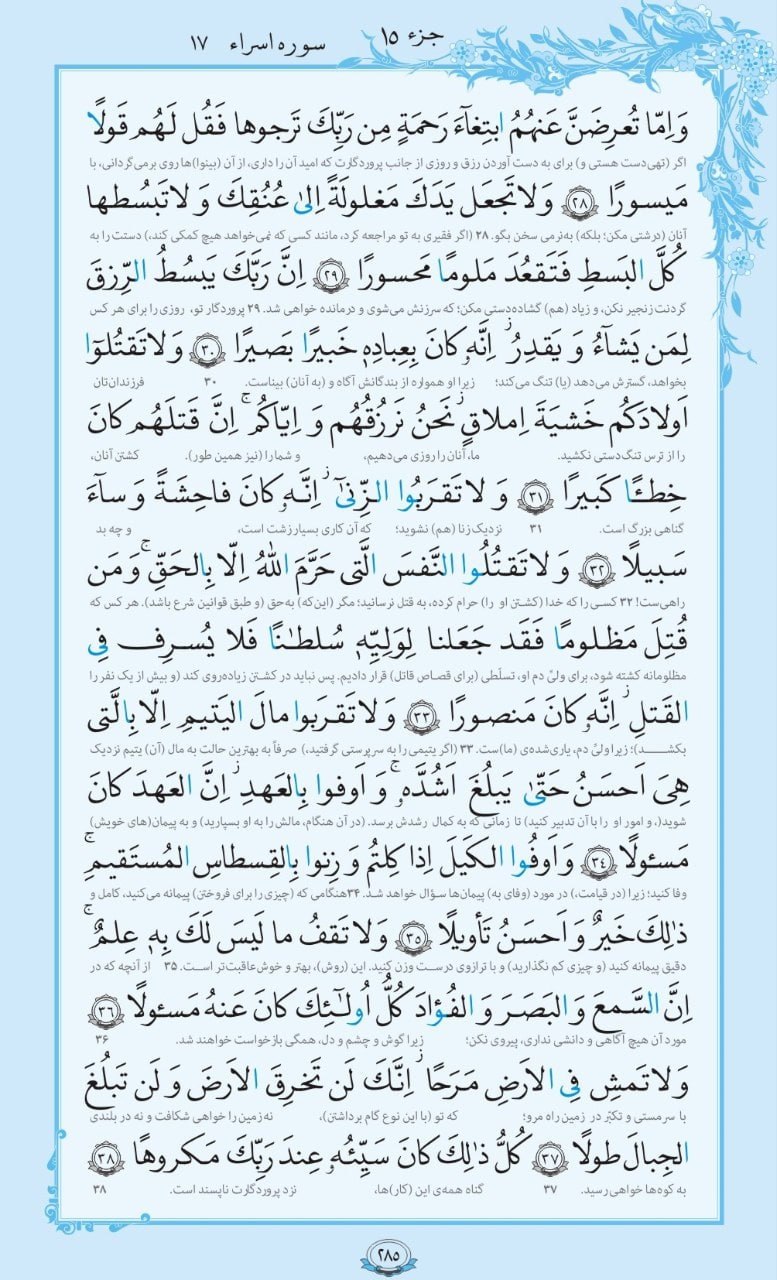 جزء ۱۵
سوره اسراء ۱۷
وَ اِمّا تُعرِضَنَّ عَنهُمُ ابتِغآءَ رَحمَةٍ مِن رَبِّكَ تَرجوها فَقُل لَهُم قَولًا
اگر (تهی‌دست هستی و) برای به دست آوردن رزق و روزی از جانب پروردگارت که امید آن را داری، از آن (بینوا)ها روی برمی‌گردانی، با
مَيسورًا ﴿۲۸﴾ وَ لا تَجعَل يَدَكَ مَغلولَةً اِلىٰ عُنُقِكَ وَ لا تَبسُطها
آنان (درشتی مکن؛ بلکه) به‌نرمی سخن بگو. ۲۸ (اگر فقیری به تو مراجعه کرد، مانند کسی که نمی‌خواهد هیچ کمکی کند،) دستت را به
كُلَّ البَسطِ فَتَقعُدَ مَلومًا مَحسورًا ﴿۲۹﴾ اِنَّ رَبَّكَ يَبسُطُ الرِّزقَ
گردنت زنجیر نکن، و زیاد (هم) گشاده‌دستی مکن؛ که سرزنش می‌شوی و درمانده خواهی شد. ۲۹ پروردگار تو، روزی را برای هر کس
لِمَن يَشآءُ وَ يَقدِرُ ۚ اِنَّهٗ كانَ بِعِبادِهٖ خَبيرًا بَصيرًا ﴿۳۰﴾ وَ لا تَقتُلوٓا
بخواهد، گسترش می‌دهد (یا) تنگ می‌کند؛ زیرا او همواره از بندگانش آگاه و (به آنان) بیناست. ۳۰ فرزندان‌تان
اَولادَكُم خَشيَةَ اِملاقٍ ۖ نَحنُ نَرزُقُهُم وَ اِيّاكُم ۚ اِنَّ قَتلَهُم كانَ
را از ترس تنگ‌دستی نکشید. ما، آنان را روزی می‌دهیم، و شما را (نیز همین طور). کشتن آنان،
خِطـًٔا كَبيرًا ﴿۳۱﴾ وَ لا تَقرَبُوا الزِّنىٰٓ ۖ اِنَّهٗ كانَ فاحِشَةً وَ سآءَ
گناهی بزرگ است. ۳۱ نزدیک زنا (هم) نشوید؛ که آن کاری بسیار زشت است، و چه بد
سَبيلًا ﴿۳۲﴾ وَ لا تَقتُلُوا النَّفسَ الَّتى حَرَّمَ اللّٰهُ اِلّا بِالحَقِّ ۚ وَ مَن
راهی‌ست! ۳۲ کسی را که خدا (کشتن او را) حرام کرده، به قتل نرسانید؛ مگر (این‌که) به‌حق (و طبق قوانین شرع باشد). هر کس که
قُتِلَ مَظلومًا فَقَد جَعَلنا لِوَلِيِّهٖ سُلطـٰنًا فَلا يُسرِف فِى
مظلومانه کشته شود، برای ولیّ دم او، تسلّطی (برای قصاص قاتل) قرار دادیم. پس نباید در کشتن زیاده‌روی کند (و بیش از یک نفر را
القَتلِ ۖ اِنَّهٗ كانَ مَنصورًا ﴿۳۳﴾ وَ لا تَقرَبوا مالَ اليَتيمِ اِلّا بِالَّتى
بکشـــد)؛ زیرا ولیّ دم، یاری‌شده‌ی (ما)ست. ۳۳ (اگر یتیمی را به سرپرستی گرفتید،) صرفاً به بهترین حالت به مال (آن) یتیم نزدیک
هِىَ اَحسَنُ حَتّىٰ يَبلُغَ اَشُدَّهٗ ۚ وَ اَوفوا بِالعَهدِ ۖ اِنَّ العَهدَ كانَ
شوید(، و امور او را با آن تدبیر کنید) تا زمانی که به کمال رشدش برسد. (در آن هنگام، مالش را به او بسپارید) و به پیمان(های خویش)
مَسئولًا ﴿۳۴﴾ وَ اَوفُوا الكَيلَ اِذا كِلتُم وَ زِنوا بِالقِسطاسِ المُستَقيمِ ۚ
وفا کنید؛ زیرا (در قیامت،) در مورد (وفای به) پیمان‌ها سؤال خواهد شد. ۳۴ هنگامی که (چیزی را برای فروختن) پیمانه می‌کنید، کامل و
ذٰلِكَ خَيرٌ وَ اَحسَنُ تَأويلًا ﴿۳۵﴾ وَ لا تَقفُ ما لَيسَ لَكَ بِهٖ عِلمٌ ۚ
دقیق پیمانه کنید (و چیزی کم نگذارید) و با ترازوی درست وزن کنید. این (روش)، بهتر و خوش‌عاقبت‌تر است. ۳۵ از آنچه که در
اِنَّ السَّمعَ وَ البَصَرَ وَ الفُؤادَ كُلُّ اُولـٰٓئِكَ كانَ عَنهُ مَسئولًا ﴿۳۶﴾
مورد آن هیچ آگاهی و دانشی نداری، پیروی نکن؛ زیرا گوش و چشم و دل، همگی بازخواست خواهند شد. ۳۶
وَ لا تَمشِ فِى الاَرضِ مَرَحًا ۖ اِنَّكَ لَن تَخرِقَ الاَرضَ وَ لَن تَبلُغَ
با سرمستی و تکبّر در زمین راه مرو؛ که تو (با این نوع گام برداشتن)، نه زمین را خواهی شکافت و نه در بلندی
الجِبالَ طولًا ﴿۳۷﴾ كُلُّ ذٰلِكَ كانَ سَيِّئُهٗ عِندَ رَبِّكَ مَكروهًا ﴿۳۸﴾
به کوه‌ها خواهی رسید. ۳۷ گناه همه‌ی این (کار)ها، نزد پروردگارت ناپسند است. ۳۸
۲۸۵